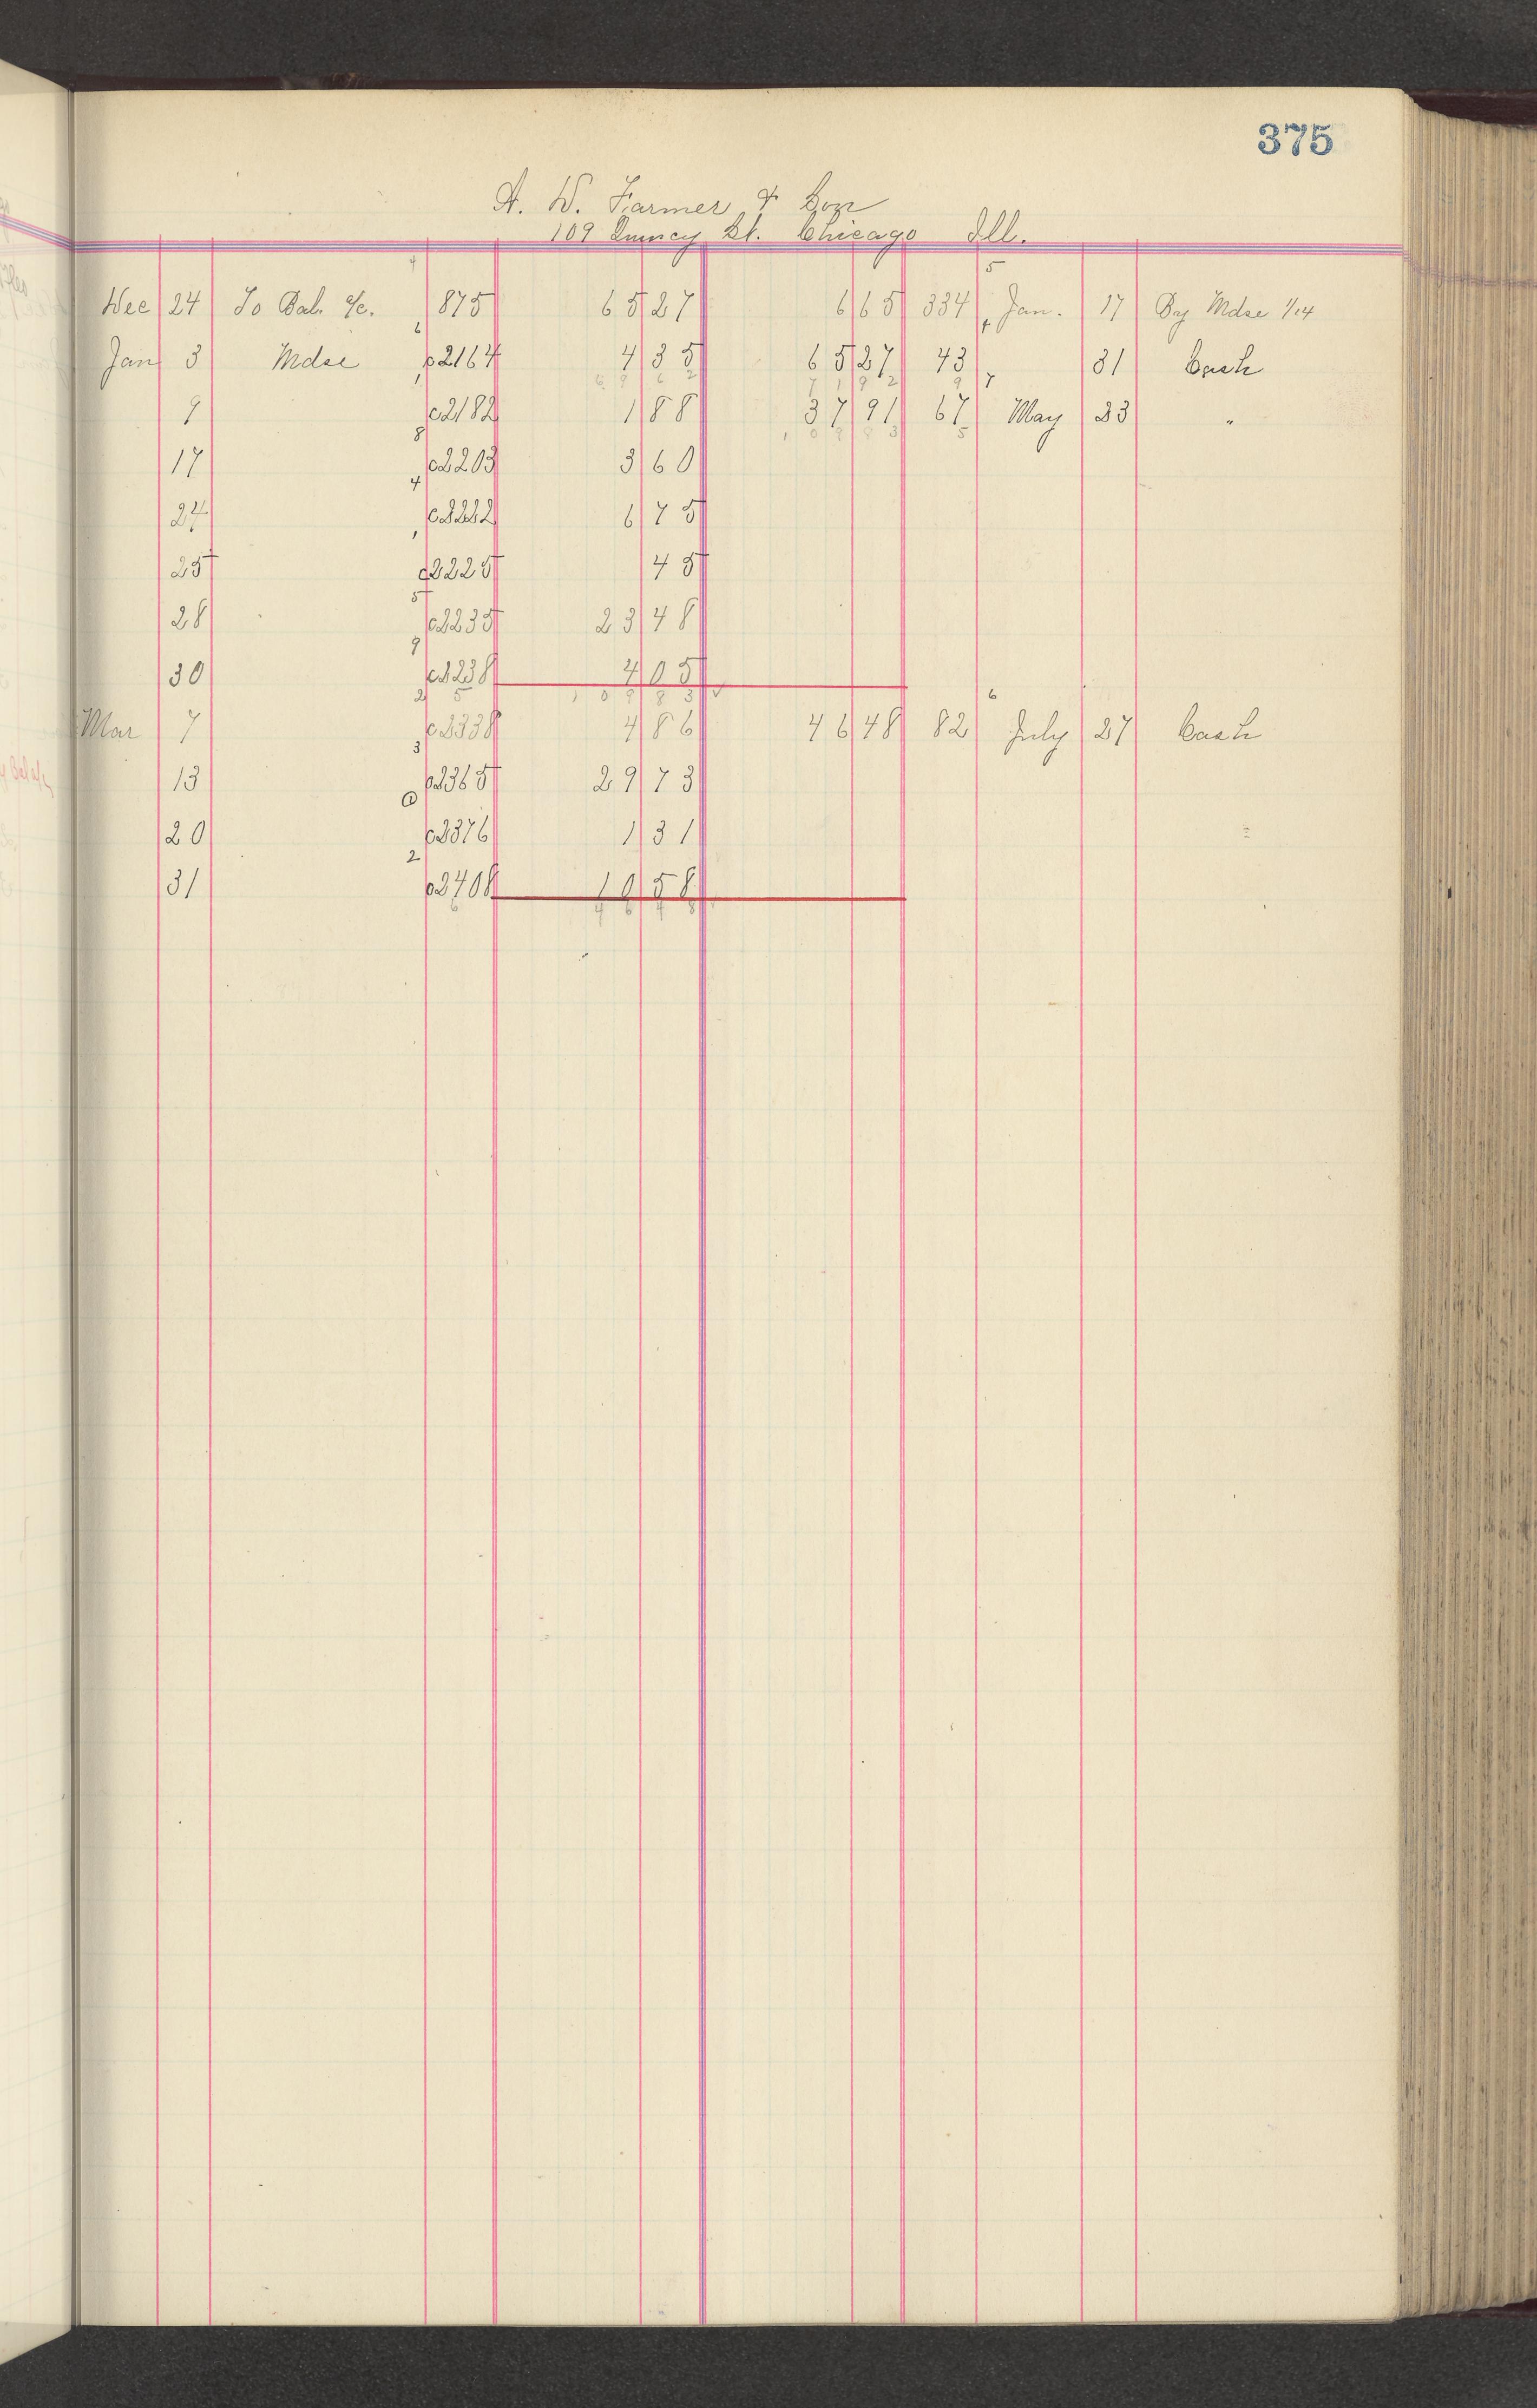 375
A. W. Farmer & Son
109 Quincy St. Chicago Ill.
Dec 24 To Bal. a/c. 875 65 27 6 65 334 Jan. 17 By Mdse 1/14
Jan 3 Mdse c2164 4 35 65 27 43 31 Cash
9 c2182 1 88 37 91 67 May 23 "
17 c2203 3 60
24 c2222 6 75
25 c2225 45
28 c2235 23 48
30 c2238 4 05
Mar 7 c2338 4 86 46 48 82 July 27 Cash
13 c2365 29 73
20 c2376 1 31
31 c2408 10 58